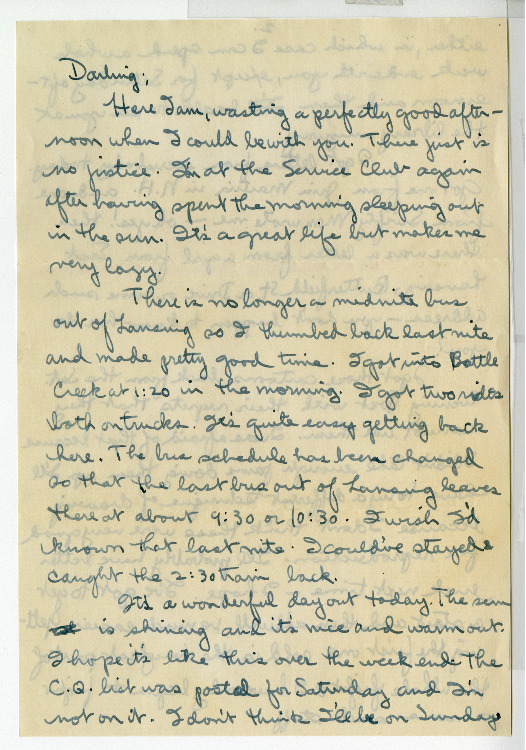 Darling;
Here I am, wasting a perfectly good after-
noon when I could be with you. There just is
no justice. I'm at the Service Club again
after having spent the morning sleeping out
in the sun. It's a great life but makes me
very lazy.
There is no longer a midnite bus
out of Lansing so I thumbed back last nite
and made pretty good time. I got into Battle
Creek at 1:20 in the morning. I got two rides
both on trucks. It's quite easy getting back
here. The bus schedule has been changed
so that the last bus out of Lansing leaves
there at about 9:30 or 10:30. I wish I'd
known that last nite. I could've stayed &
caught the 2:30 train back.
It's a wonderful day out today. The sun
is shining and it's nice and warm out.
I hope it's like this over the week end. The
C.Q. list was posted for Saturday and I'm
not on it. I don't think I'll be on Sunday